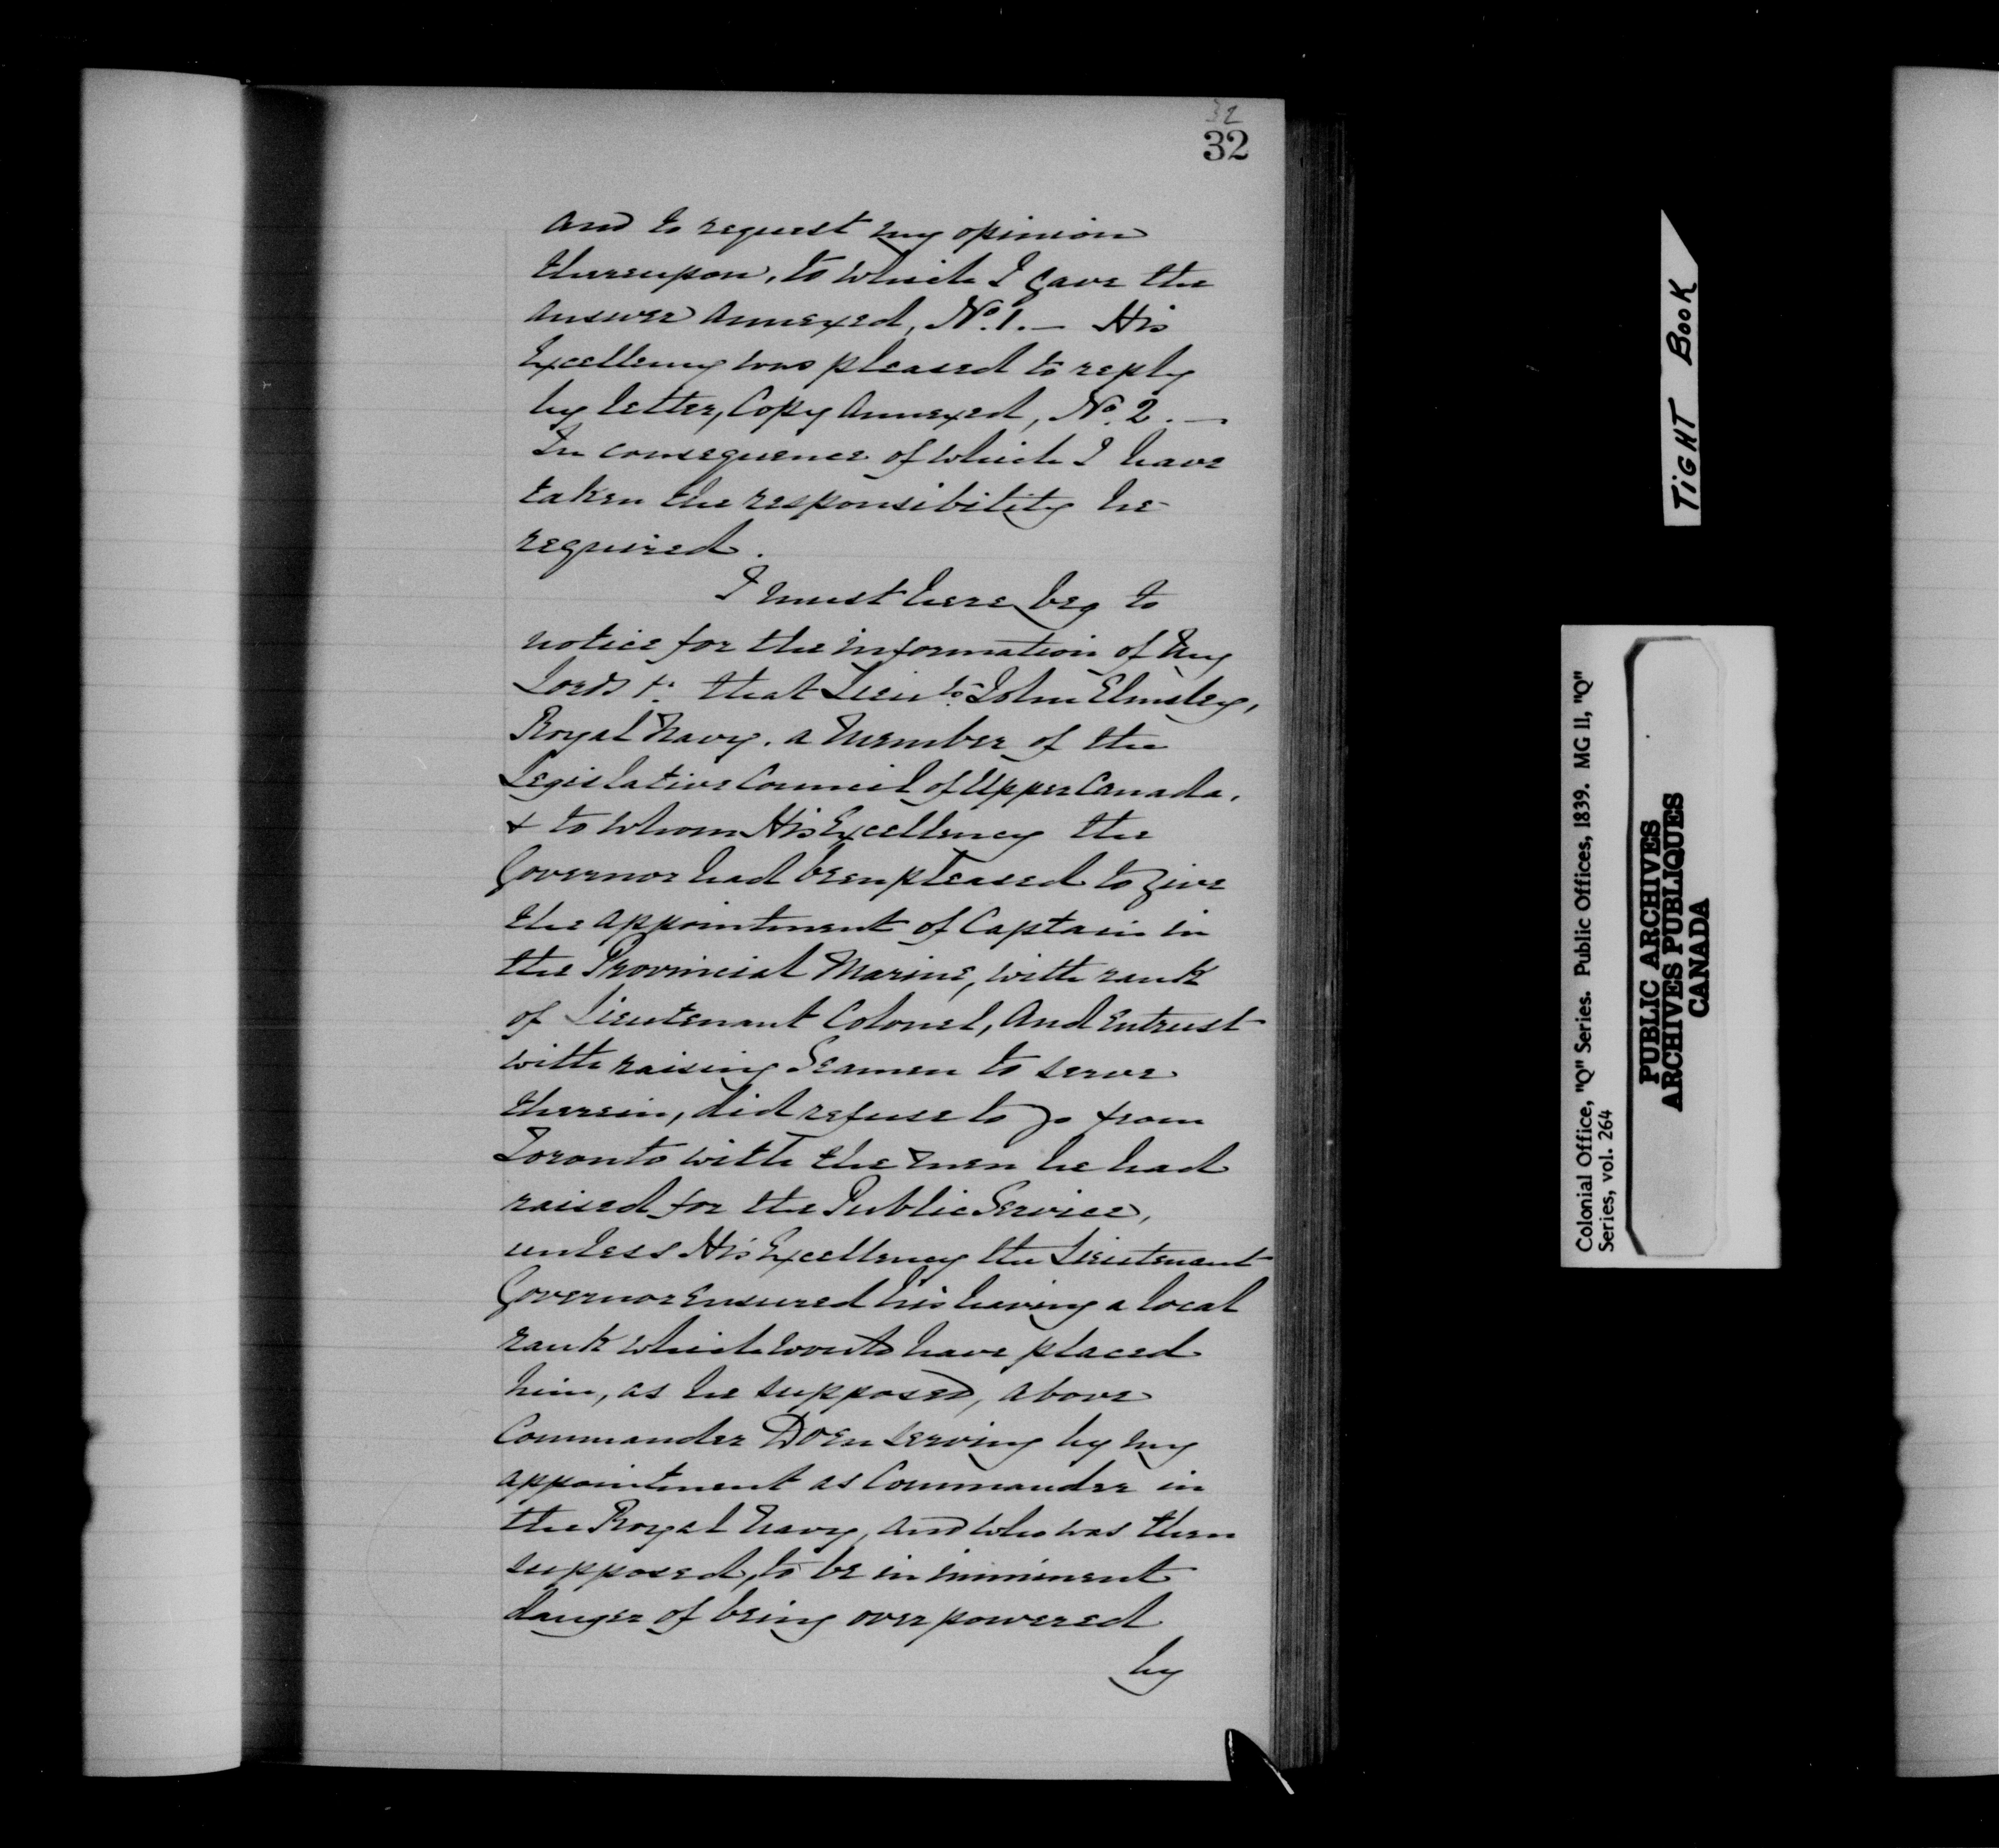 32
32
and to request my opinion
thereupon, to which I gave the
answer annexed, No. 1. — His
Excellency was pleased to reply
by letter, Copy annexed, No. 2. —
In consequence of which I have
taken the responsibility he
required.
I must here beg to
notice for the information of my
Lords &c. that Lieut. John Elmsley,
Royal Navy, a member of the
Legislative Council of Upper Canada,
& to whom His Excellency the
Governor had been pleased to give
the appointment of Captain in
the Provincial Marine, with rank
of Lieutenant Colonel, and entrust
with raising Seamen to serve
therein, did refuse to go from
Toronto with the men he had
raised for the Public Service,
unless His Excellency the Lieutenant
Governor ensured his having a local
rank which would have placed
him, as he supposed, above
Commander serving by my
appointment as Commander in
the Royal Navy, and who was then
supposed, to be in imminent
danger of being overpowered
by
TIGHT BOOK
Colonial Office, "Q" Series. Public Offices, 1839. MG 11, "Q"
Series, vol. 264
PUBLIC ARCHIVES
ARCHIVES PUBLIQUES
CANADA